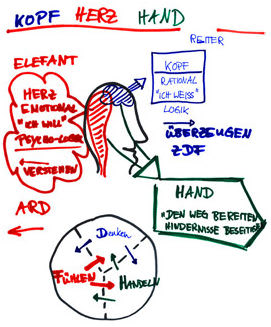 KOPF HERZ HAND
REITER
ELEFANT
KOPF
RATIONAL
"ICH WEISS"
LOGIK
HERZ
EMOTIONAL
"ICH WILL"
PSYCHO-LOGIK
VERSTEHEN
ÜBERZEUGEN
ZDF
ARD
HAND
"DEN WEG BEREITEN
HINDERNISSE BESEITIGE
Denken
FÜHLEN
HANDELN